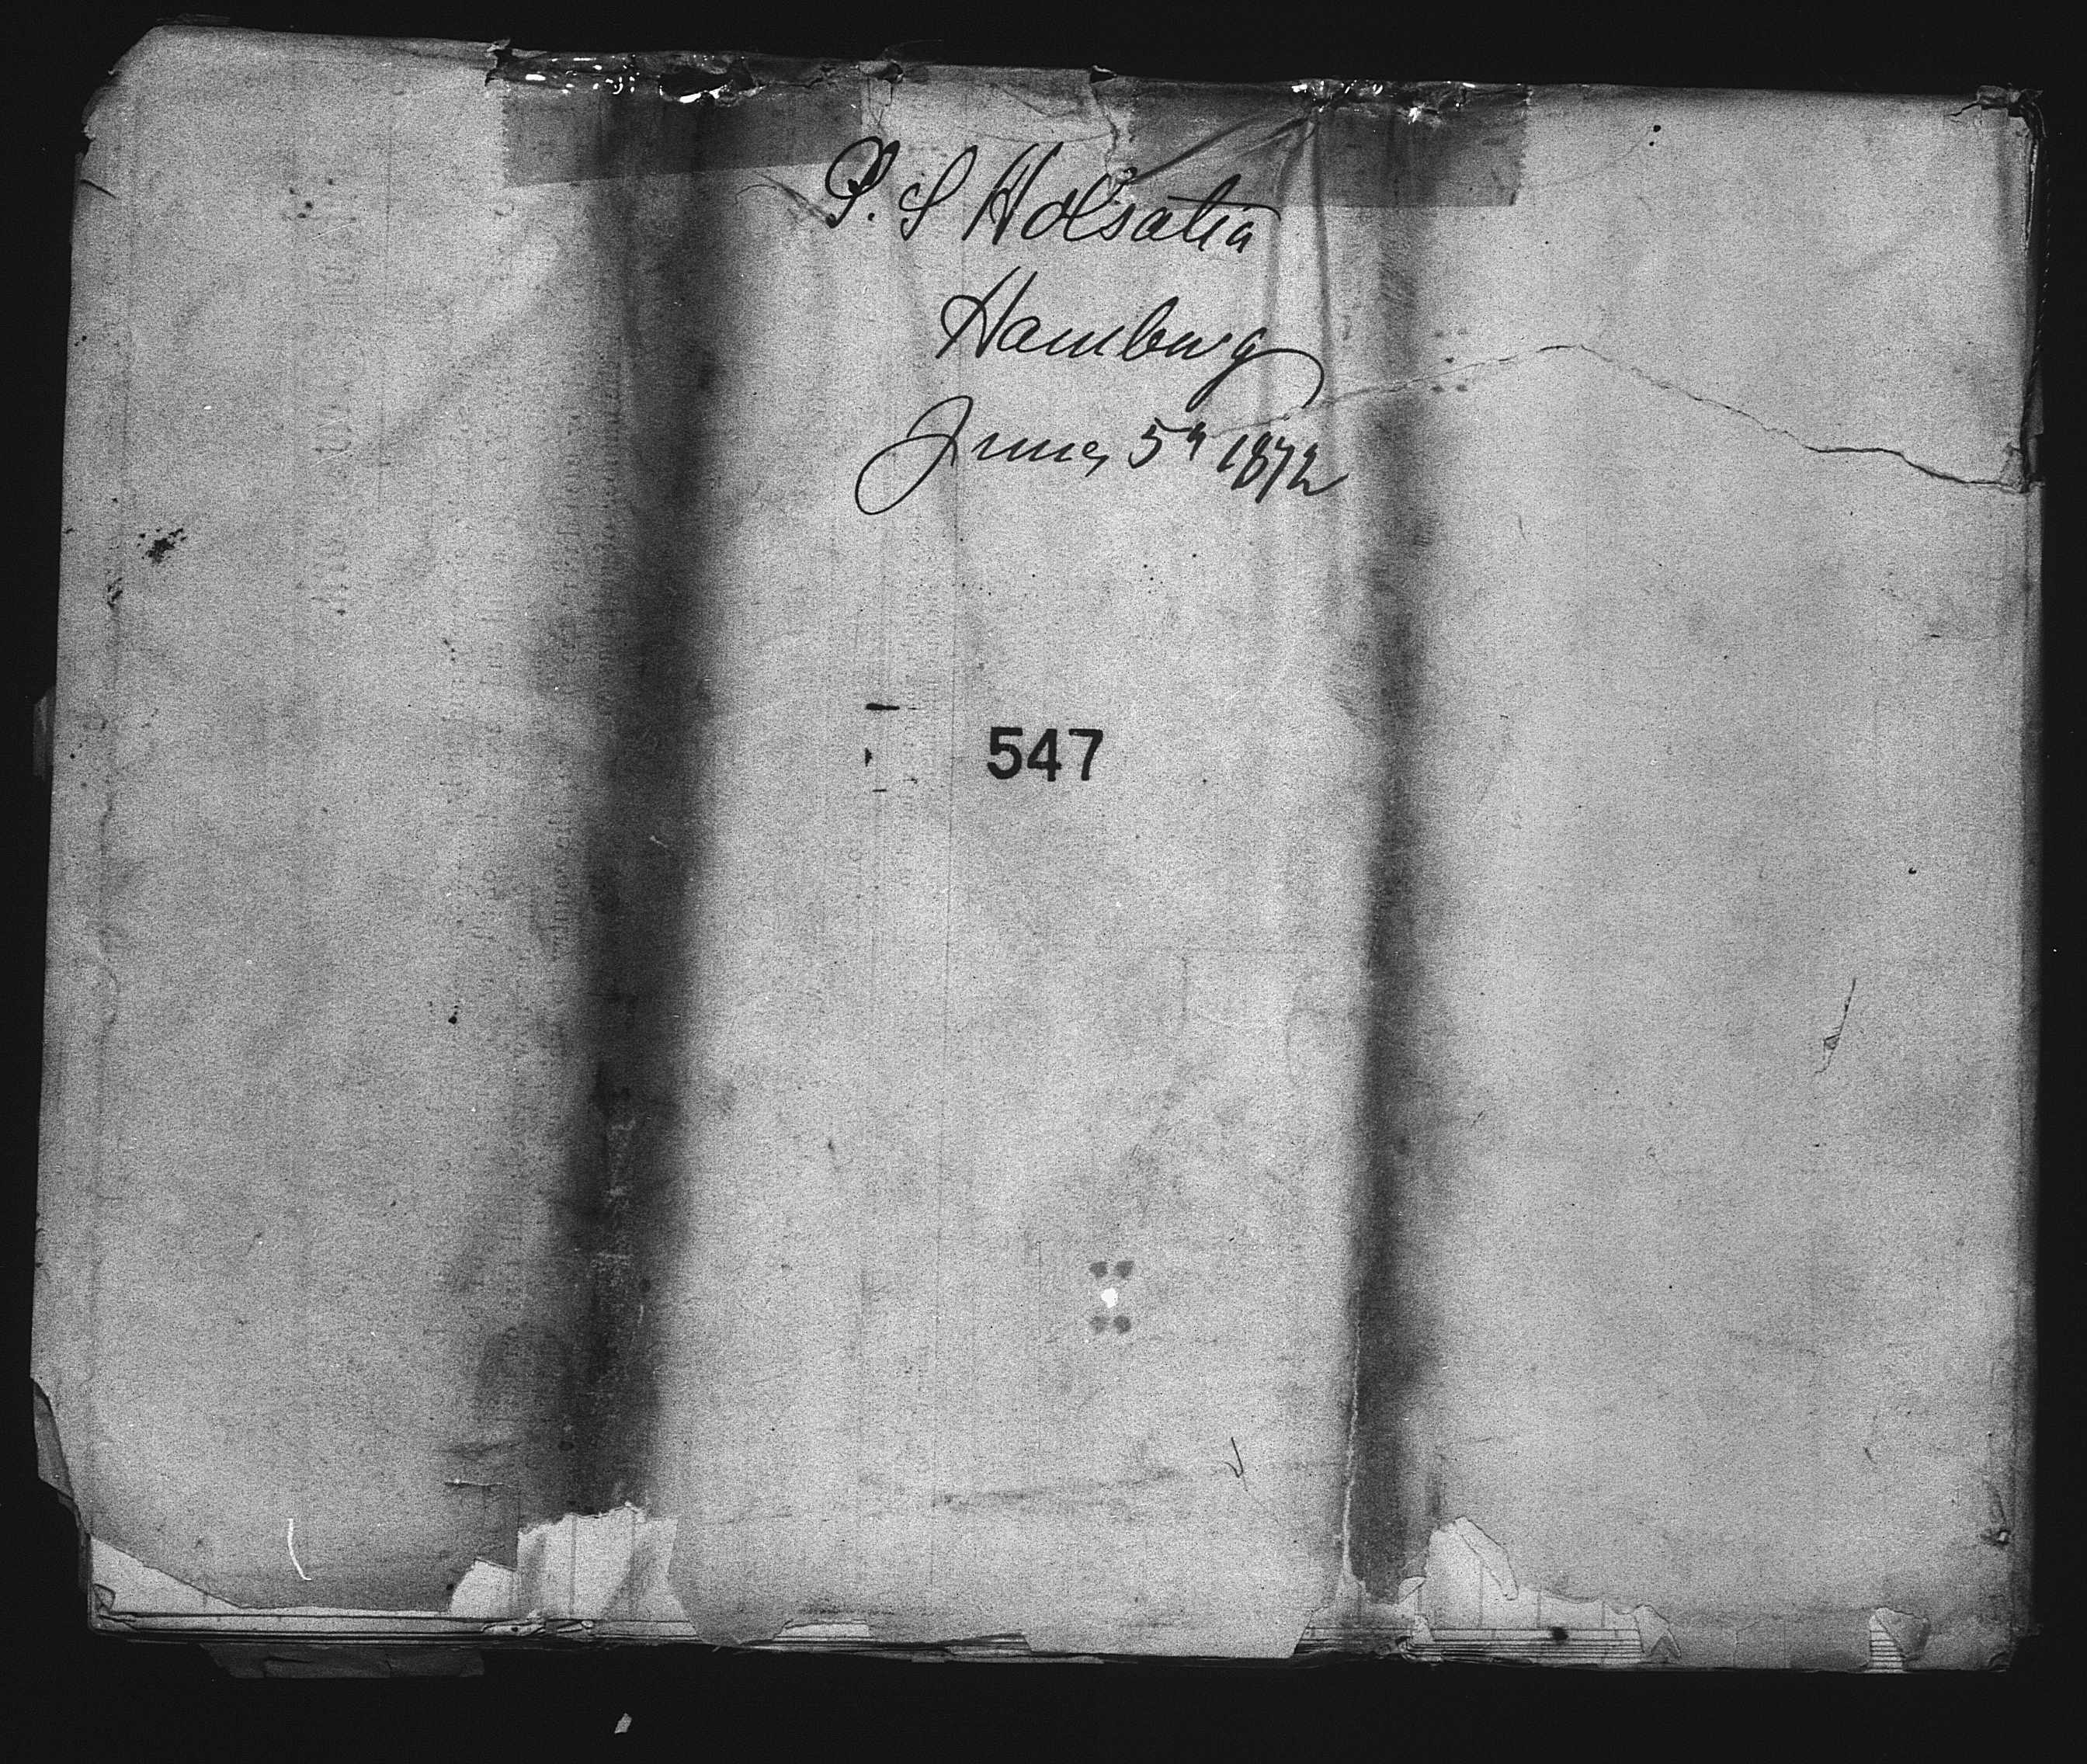 S. S Holsatia
Hamburg
June, 5th 1872
547